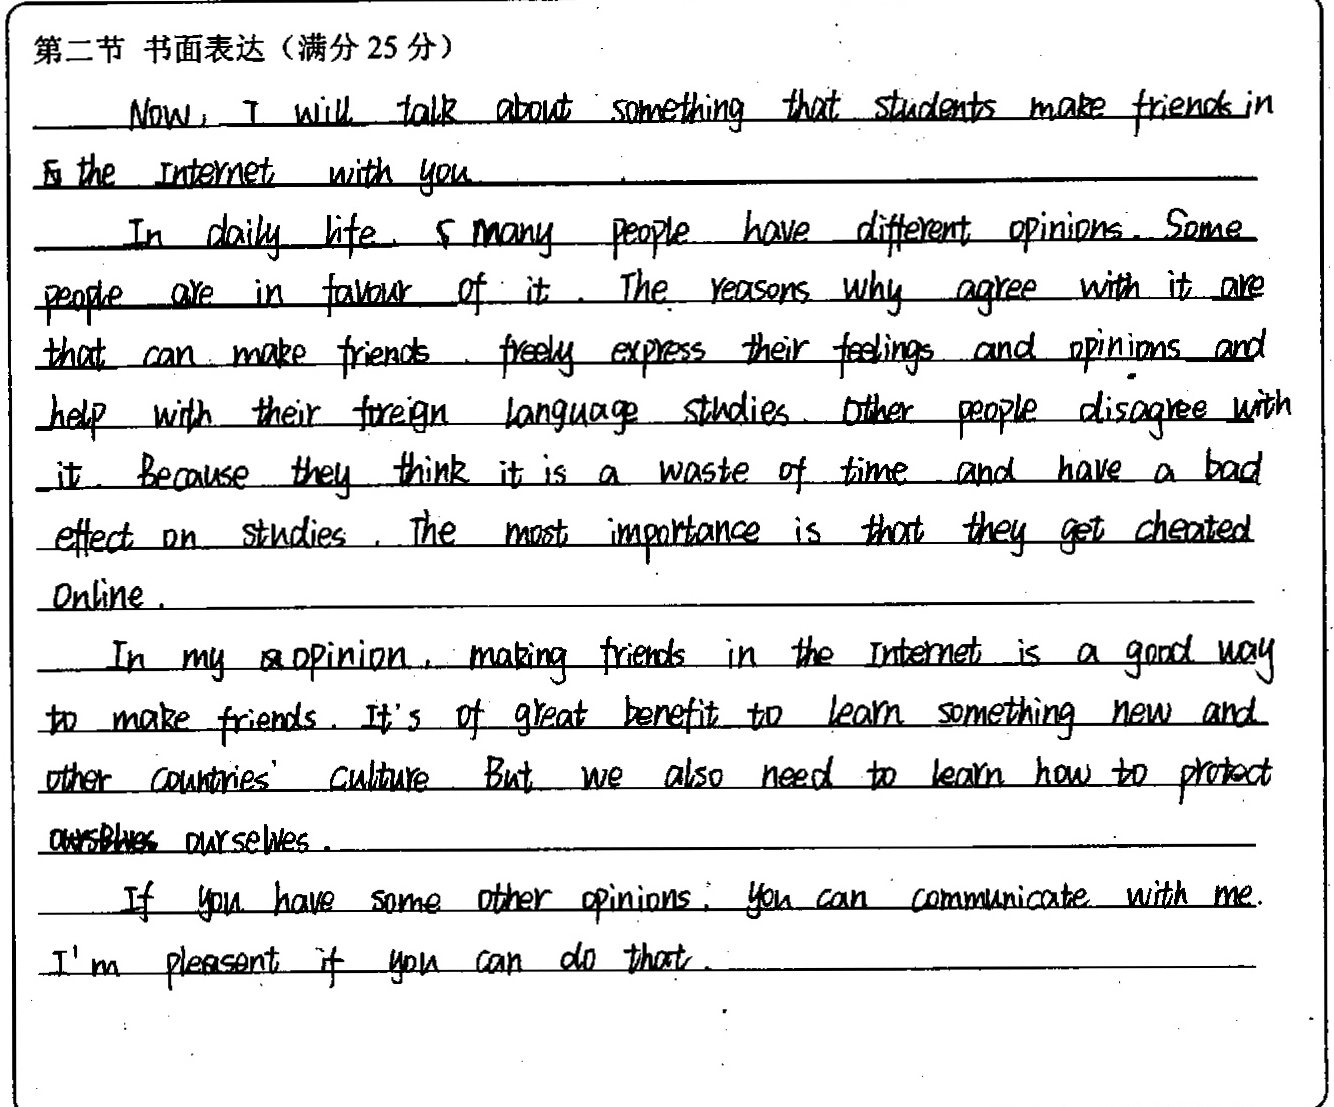 第二节 书面表达（满分 25 分）
Now, I will talk about something that students make friends in
the Internet with you
In daily life, many people have different opinions. Some
people are in favour of it. The reasons why agree with it are
that can make friends, freely express their feelings and opinions and
help with their foreign language studies. Other people disagree with
it. Because they think it is a waste of time and have a bad
effect on studies. The most importance is that they get cheated
Online.
In my opinion, making friends in the Internet is a good way
to make friends. It's of great benefit to learn something new and
other countries' culture But we also need to learn how to protect
ourselves.
If you have some other opinions, you can communicate with me.
I'm pleasent if you can do that.